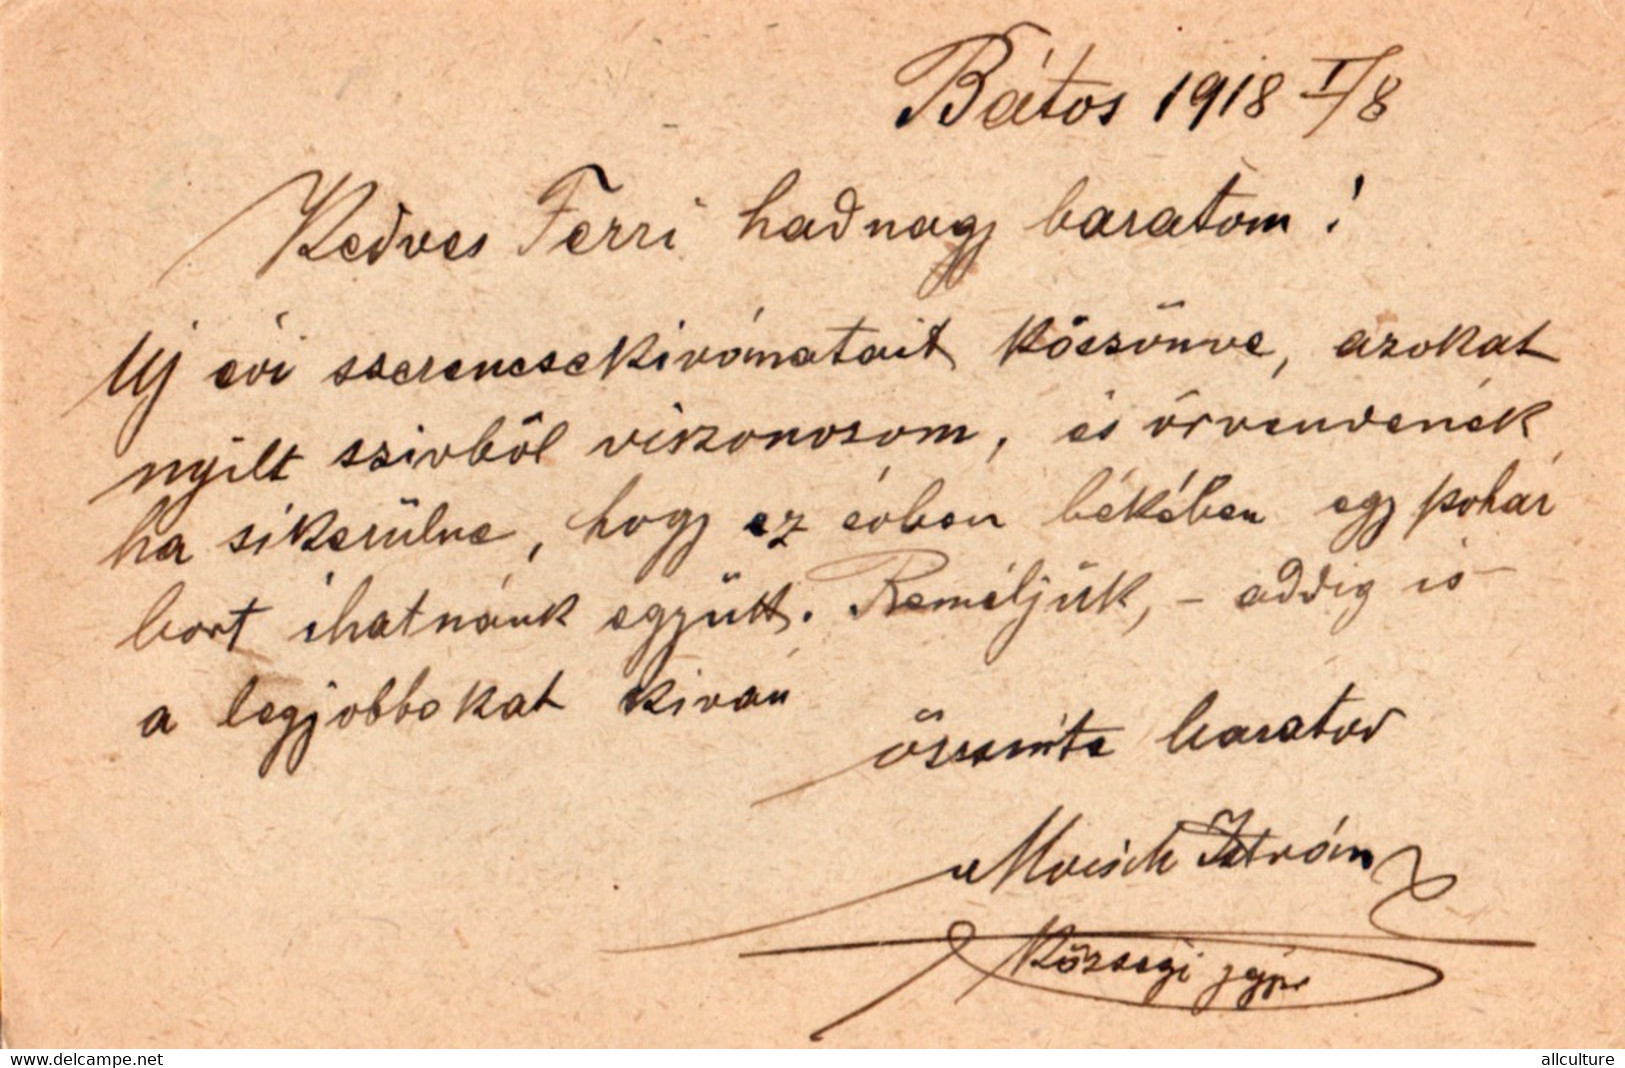 Bátos 1918 I/8
Kedves Ferri hadnagy baratom!
Uj évi szerencsekivánatait köszönve, azokat
nyilt szivből viszonozom, és örvendenék
ha sikerülne, hogy ez évben békében egy pohár
bort ihatnánk együtt. Reméljük, – addig is
a legjobbokat kiván
őszinte baratod
István
Községi jegyző
www.delcampe.net allculture